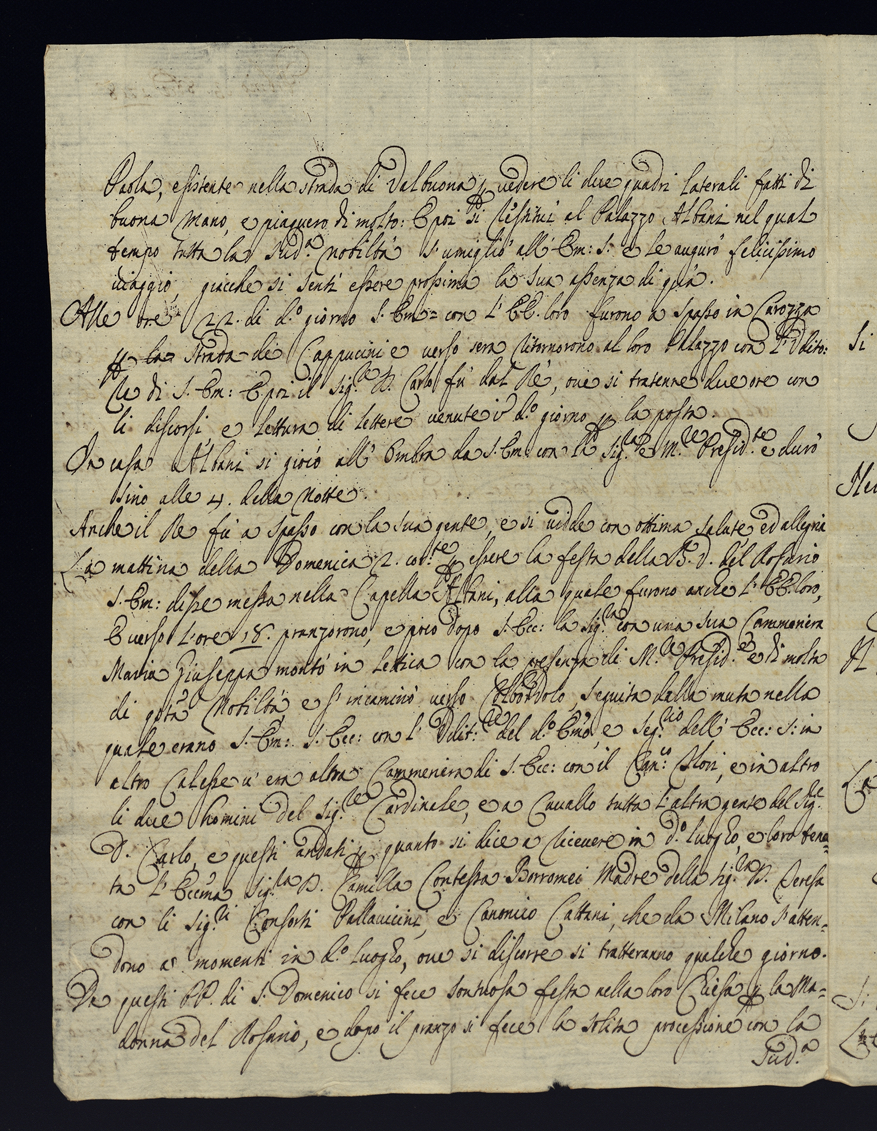 Paola, esistente nella strada di Valbuona p vedere li due quadri laterali fatti di
buona mano, e piaquero di molto: E poi si restituì al Palazzo Albani nel qual
tempo tutta la sud.ª Nobiltà s'umigliò all'Em: S: e le augurò felicissimo
viaggio, giacche si sentì essere prossima la sua assenza di quà.
Alle ore 22. di d.º giorno S. Em: con L'EE. loro furono a spasso in Carozza
p la strada de Cappucini e verso sera ritornorono al loro Palazzo con L'Udito:
re di S. Em: E poi il Sig.re D. Carlo fù dal Rè, ove si tratenne due ore con
li discorsi e lettura di lettere venute in d.º giorno p la posta.
In casa Albani si giocò all'Ombra da S. Em con la Sig.ra e M.re Presid.te e durò
sino alle 4. della Notte.
Anche il Rè fù a spasso con la sua gente, e si vidde con ottima salute ed allegria
La mattina della Domenica 2. cor.te p essere la festa della B. V. del Rosario
S. Em: disse messa nella Capella Albani, alla quale furono anche L'EE. loro,
E verso L'ore 18. pranzorono, e poco dopo S. Ecc: la Sig.ra con una sua Cammeriera
Maria Giuseppa montò in Lettica con la presenza di M.re Presid.e e di molta
di q.sta Nobiltà e s'incaminò verso seguita dalla muta nella
quale erano S. Em: S. Ecc: con L'Udit.re del d.º Emo, e Seg.rio dell'Ecc: S: in
altro Calesse v'era altra Cammeriera di S. Ecc: con il Can.co e in altro
li due homini del Sig.re Cardinale, e a Cavallo tutta L'altra gente del Sig.r
D. Carlo, e questi andati p quanto si dice a ricevere in d.º luogho, e loro tenu:
ta L'Eccma Sig.ra D. Camilla Contessa Borromei Madre della Sig.ra D. Teresa
con li Sig.ri Consorti Pallavicini, e Canonico Cattani, che da Milano s'atten:
dono a momenti in d.º luogho, ove si discorre si tratteranno qualche giorno.
Da questi PP. di S. Domenico si fece sontuosa festa nella loro Chiesa p la Ma:
donna del Rosario, e dopo il pranzo si fece la solita processione con la
sud.ª